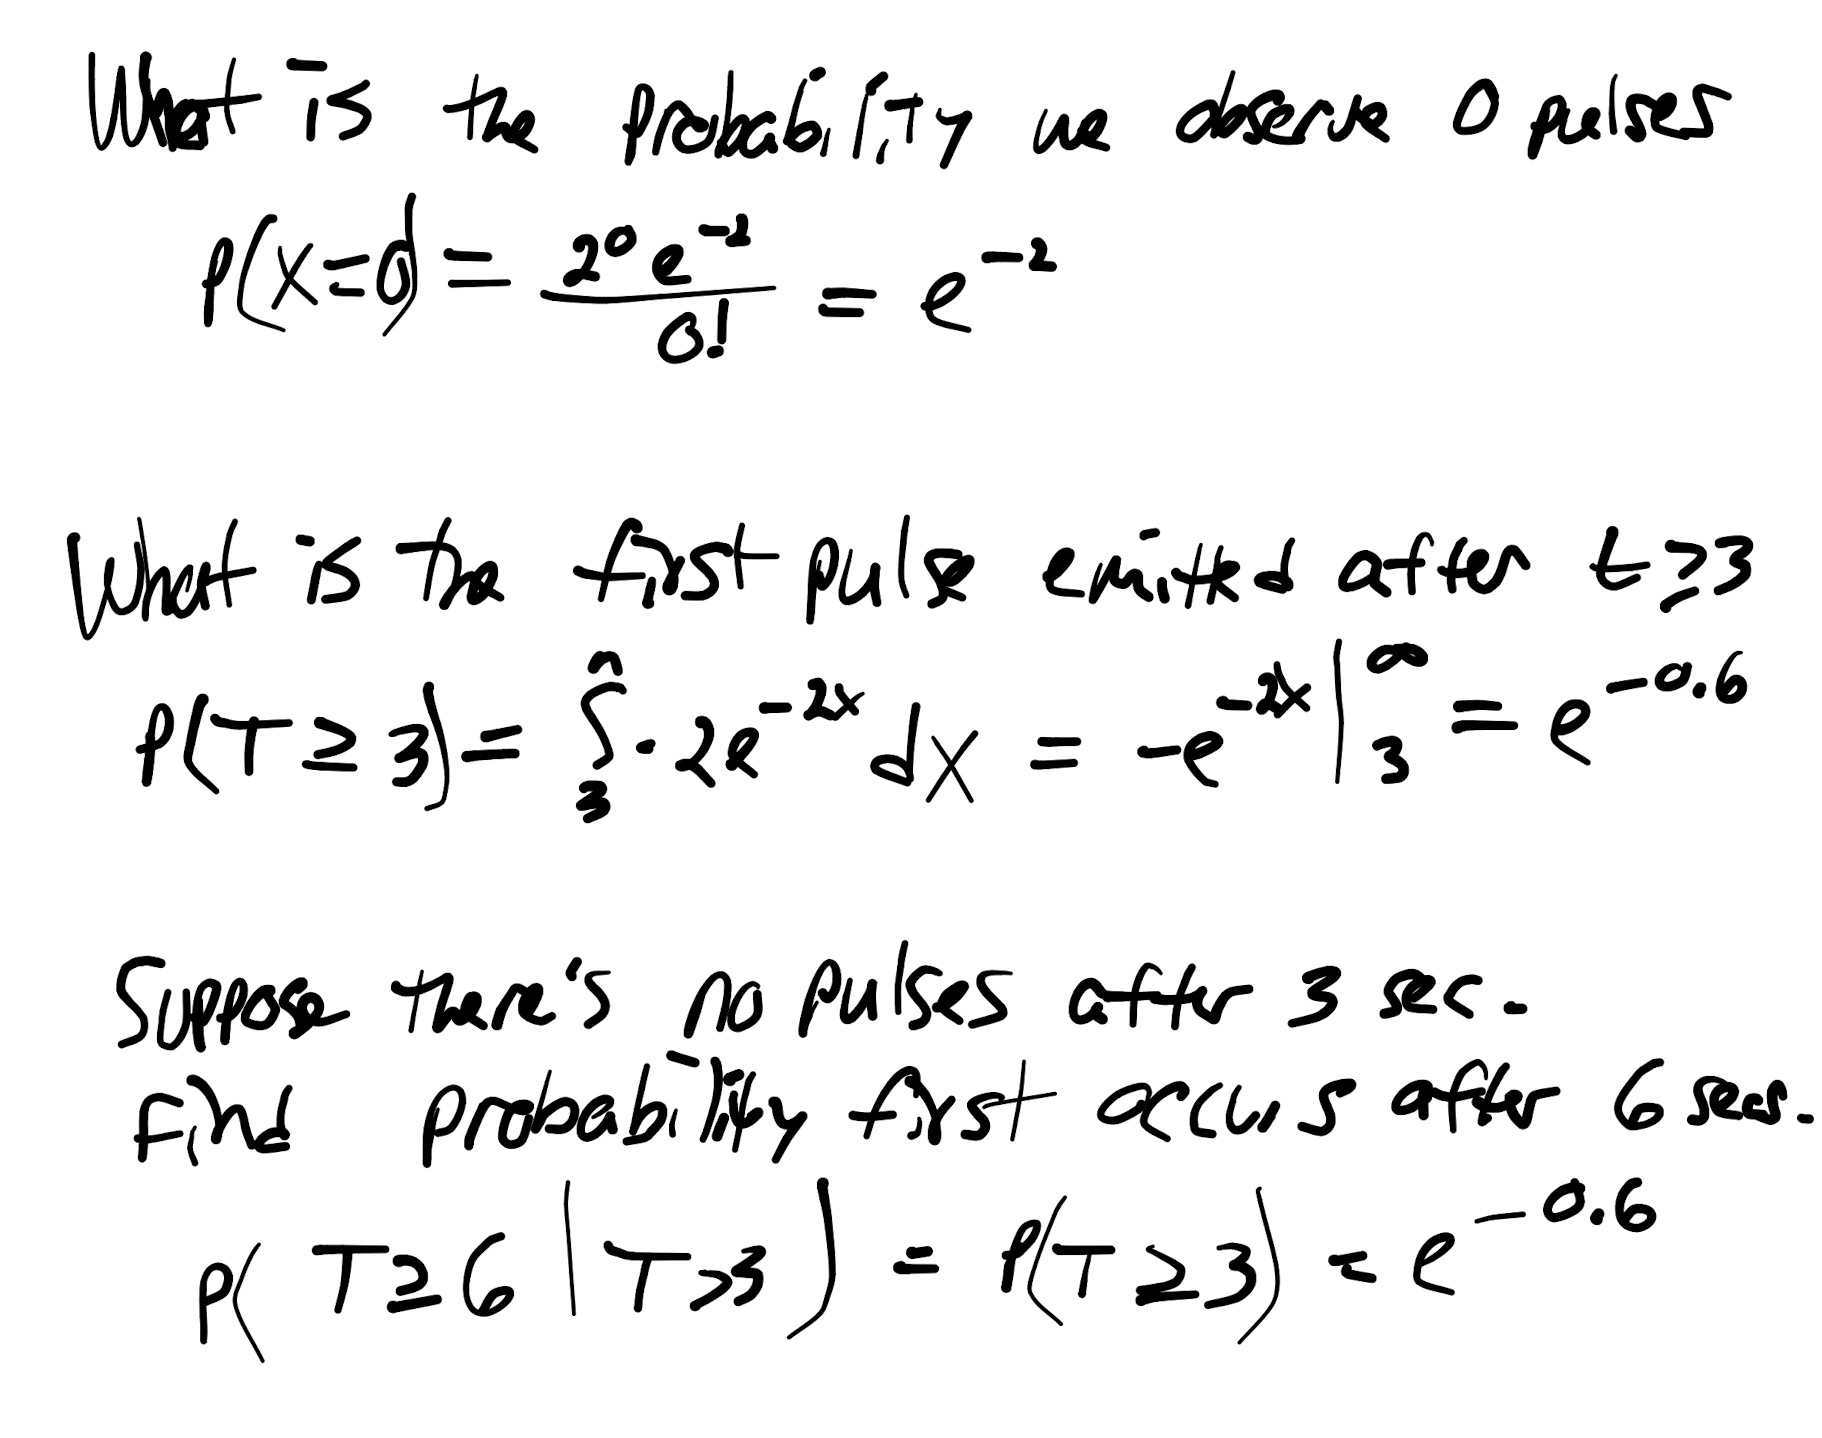 What is the probability we observe 0 pulses
P(X=0) = 2⁰ e⁻² / 0! = e⁻²
What is the first pulse emitted after t ≥ 3
P(T ≥ 3) = ∫₃^n · 2e^(-2x) dx = -e^(-2x) |₃^∞ = e^(-0.6)
Suppose there's no pulses after 3 sec.
Find probability first occurs after 6 secs.
P( T ≥ 6 | T > 3 ) = P(T ≥ 3) = e^(-0.6)